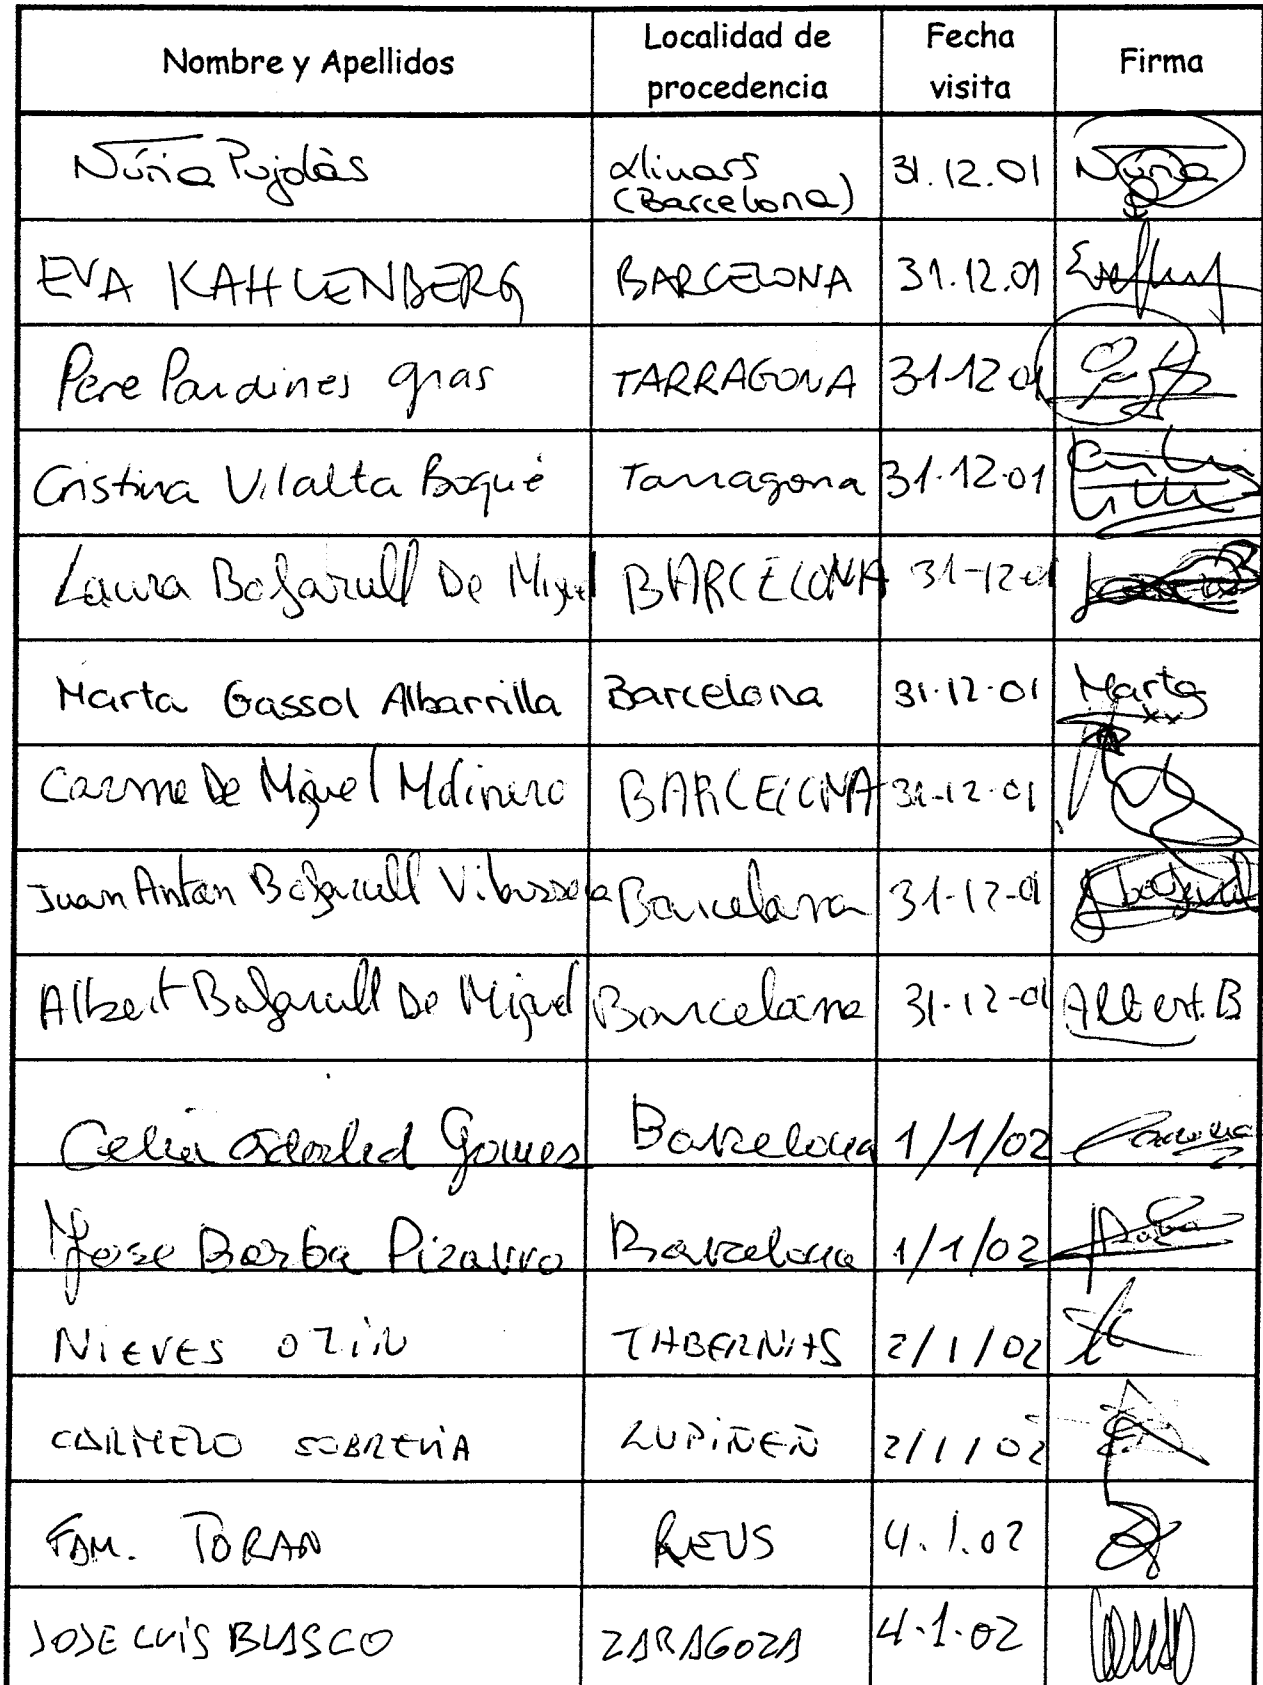 Nombre y Apellidos Localidad de procedencia Fecha visita Firma
Núria Pujolàs Llinars (Barcelona) 31.12.01 Núria
EVA KAHLENBERG BARCELONA 31.12.01
Pere Pardines Gras TARRAGONA 31-12 01
Cristina Vilalta Boqué Tarragona 31-12-01
Laura Bofarull De Miguel BARCELONA 31-12-01
Marta Gassol Albarrilla Barcelona 31-12-01 Marta
Carme De Miguel Molinero BARCELONA 31-12-01
Juan Anton Bofarull Barcelona 31-12-01
Albert Bofarull De Miguel Barcelona 31-12-01 Albert.B
Celia Gomes Barcelona 1/1/02
Jose Borba Pizarro Barcelona 1/1/02
NIEVES OZIN TABERNAS 2/1/02
CARMELO SOBREVIA LUPIÑEN 2/1/02
FAM. TORAN REUS 4.1.02
JOSE LUIS BLASCO ZARAGOZA 4-1-02